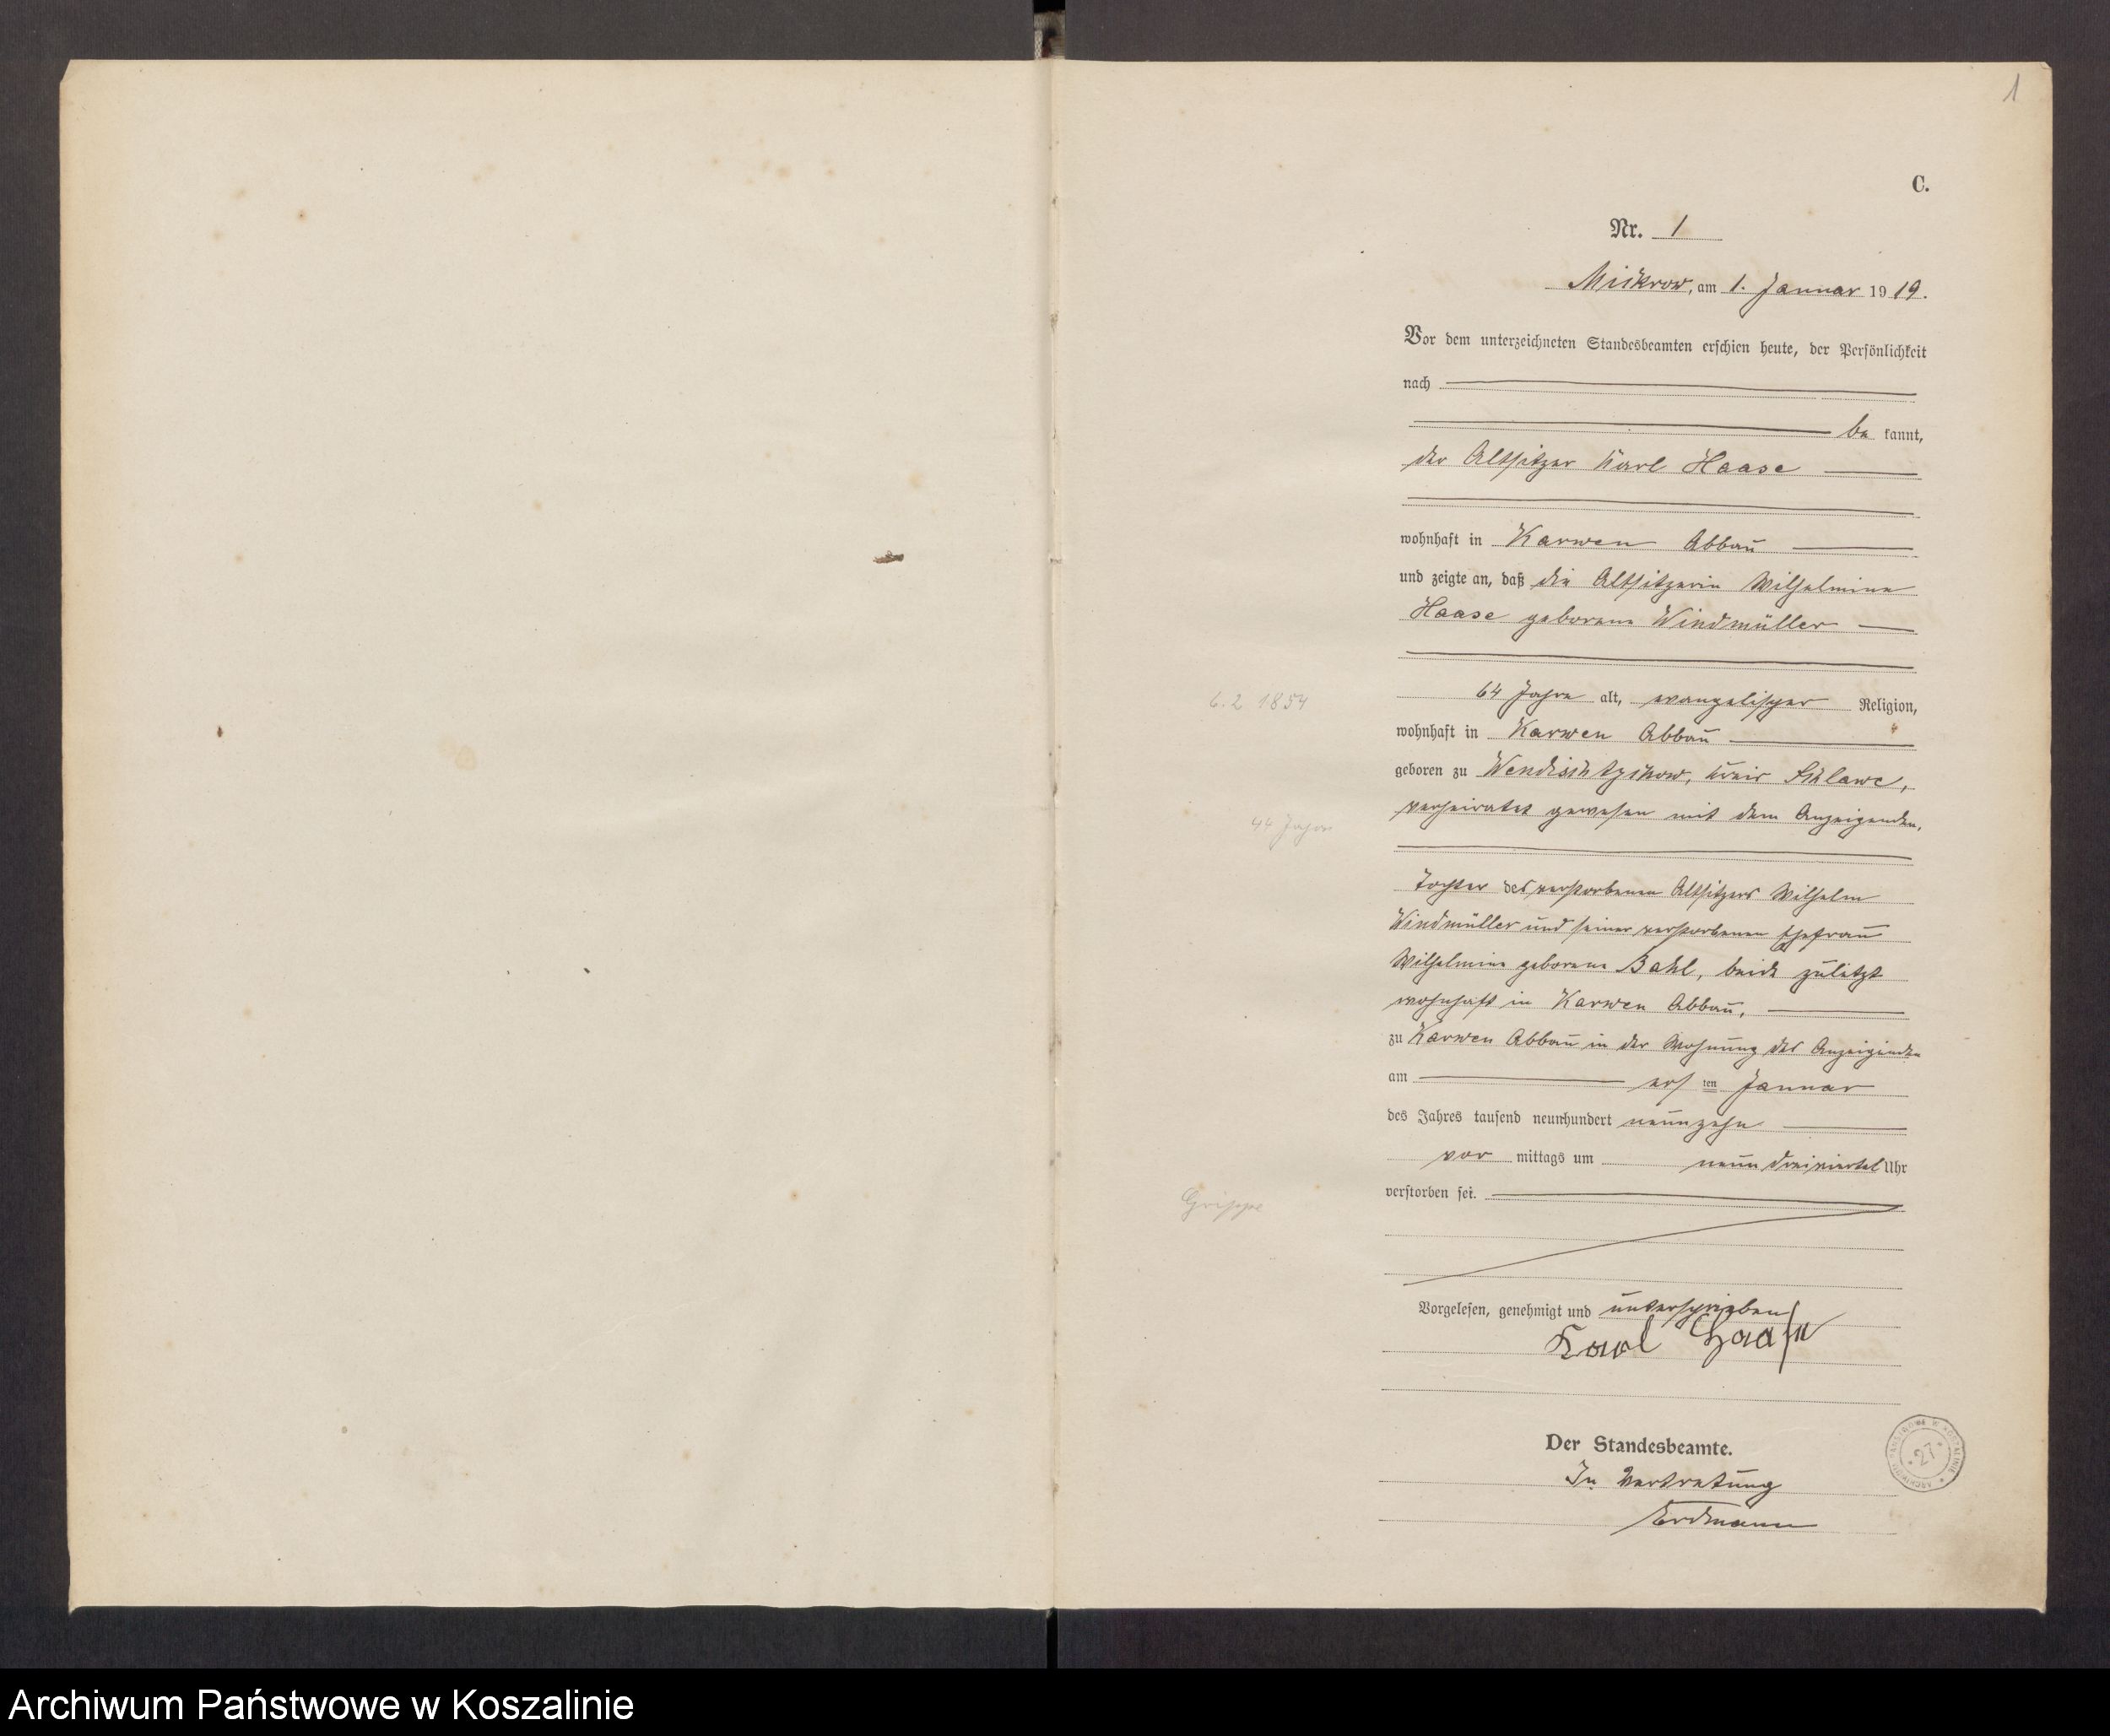 1
C.
Nr. 1
Mickrow, am 1. Januar 1919.
Vor dem unterzeichneten Standesbeamten erschien heute, der Persönlichkeit
nach
be kannt,
der Altsitzer Karl Haase
wohnhaft in Karwen Abbau
und zeigte an, daß die Altsitzerin Wilhelmine
Haase geborene Windmüller
6.2 1854
64 Jahre alt, evangelischer Religion,
wohnhaft in Karwen Abbau
geboren zu Wendisch Kreis Schlawe,
verheiratet gewesen mit dem Anzeigenden,
44 Jahre
Tochter des verstorbenen Altsitzers Wilhelm
Windmüller und seiner verstorbenen Ehefrau
Wilhelmine geborene Bahl, beide zuletzt
wohnhaft in Karwen Abbau,
zu Karwen Abbau in der Wohnung des Anzeigenden
am ersten Januar
des Jahres tausend neunhundert neunzehn
vor mittags um neun dreiviertel Uhr
verstorben sei.
Grippe
Vorgelesen, genehmigt und unterschrieben
Karl Haase
Der Standesbeamte.
In Vertretung
Erdmann
ARCHIWUM PAŃSTWOWE W KOSZALINIE
* 27 *
Archiwum Państwowe w Koszalinie